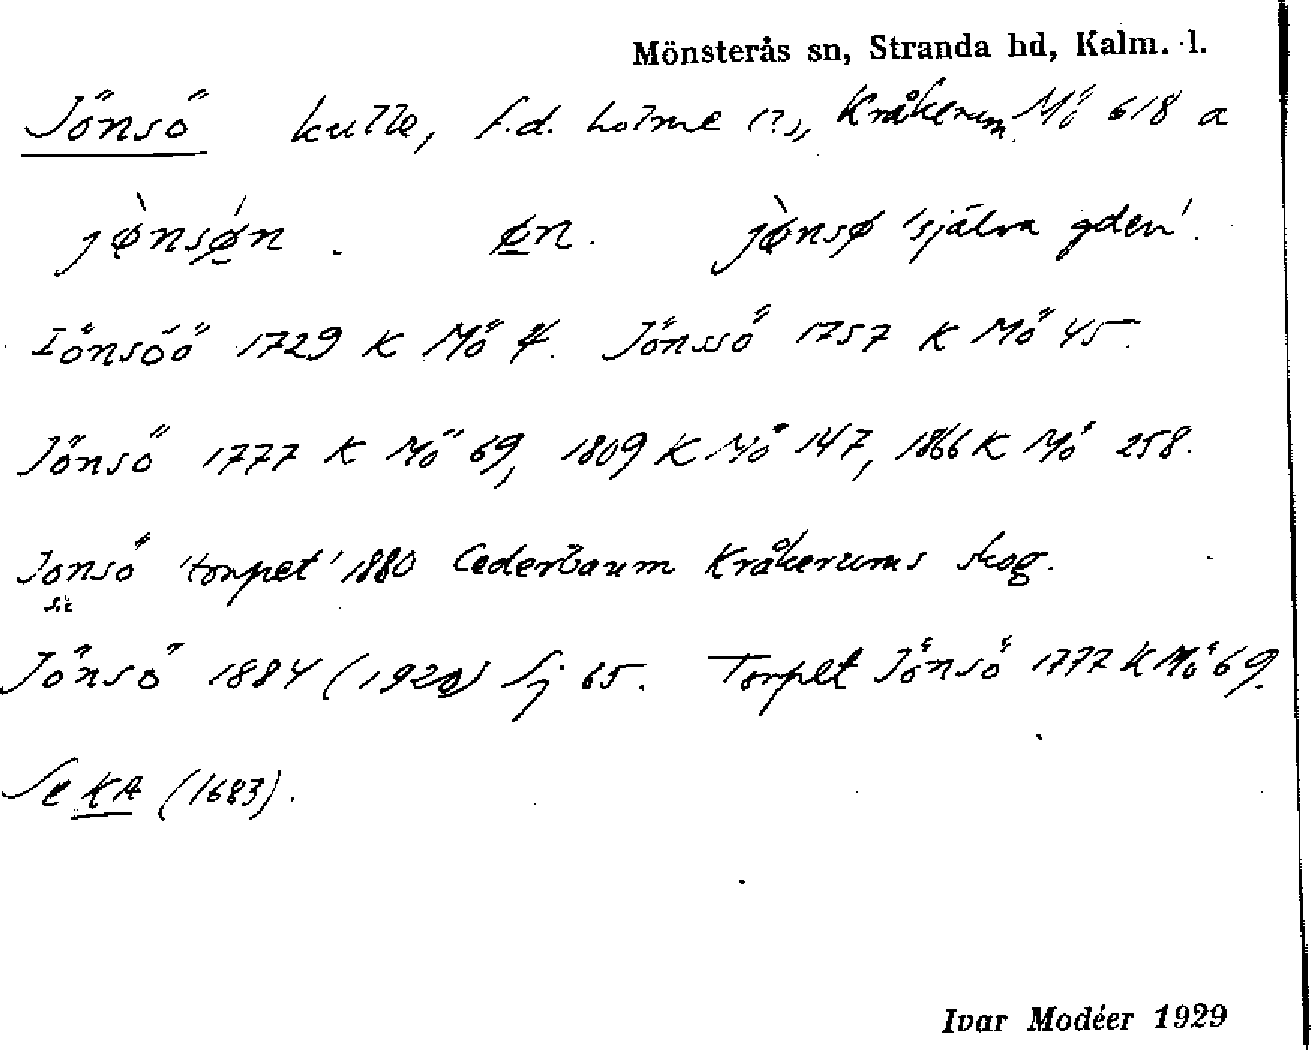 Mönsterås sn, Stranda hd, Kalm. l.
Jönsö kulle, f.d. holme (?), Kråkerum Mö 618 a
jø̀nsǿn. øn. jø̀nsø 'själva gden'.
Iönsöö 1729 K Mö 4. Jönssö 1757 K Mö 45.
Jönsö 1777 K Mö 69, 1809 K Mö 147, 1866 K Mö 258.
Jonsö 'torpet' 1880 Cederbaum Kråkerums skog.
sic
Jönsö 1884 (1920) Sj 65. Torpet Jönsö 1777 K Mö 69.
Se KA (1683).
Ivar Modéer 1929